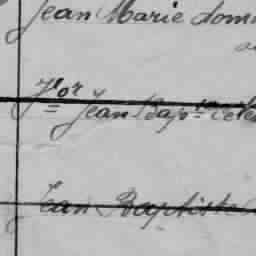 Jean Marie dom
Jean Bapte Cele
Jean Baptiste